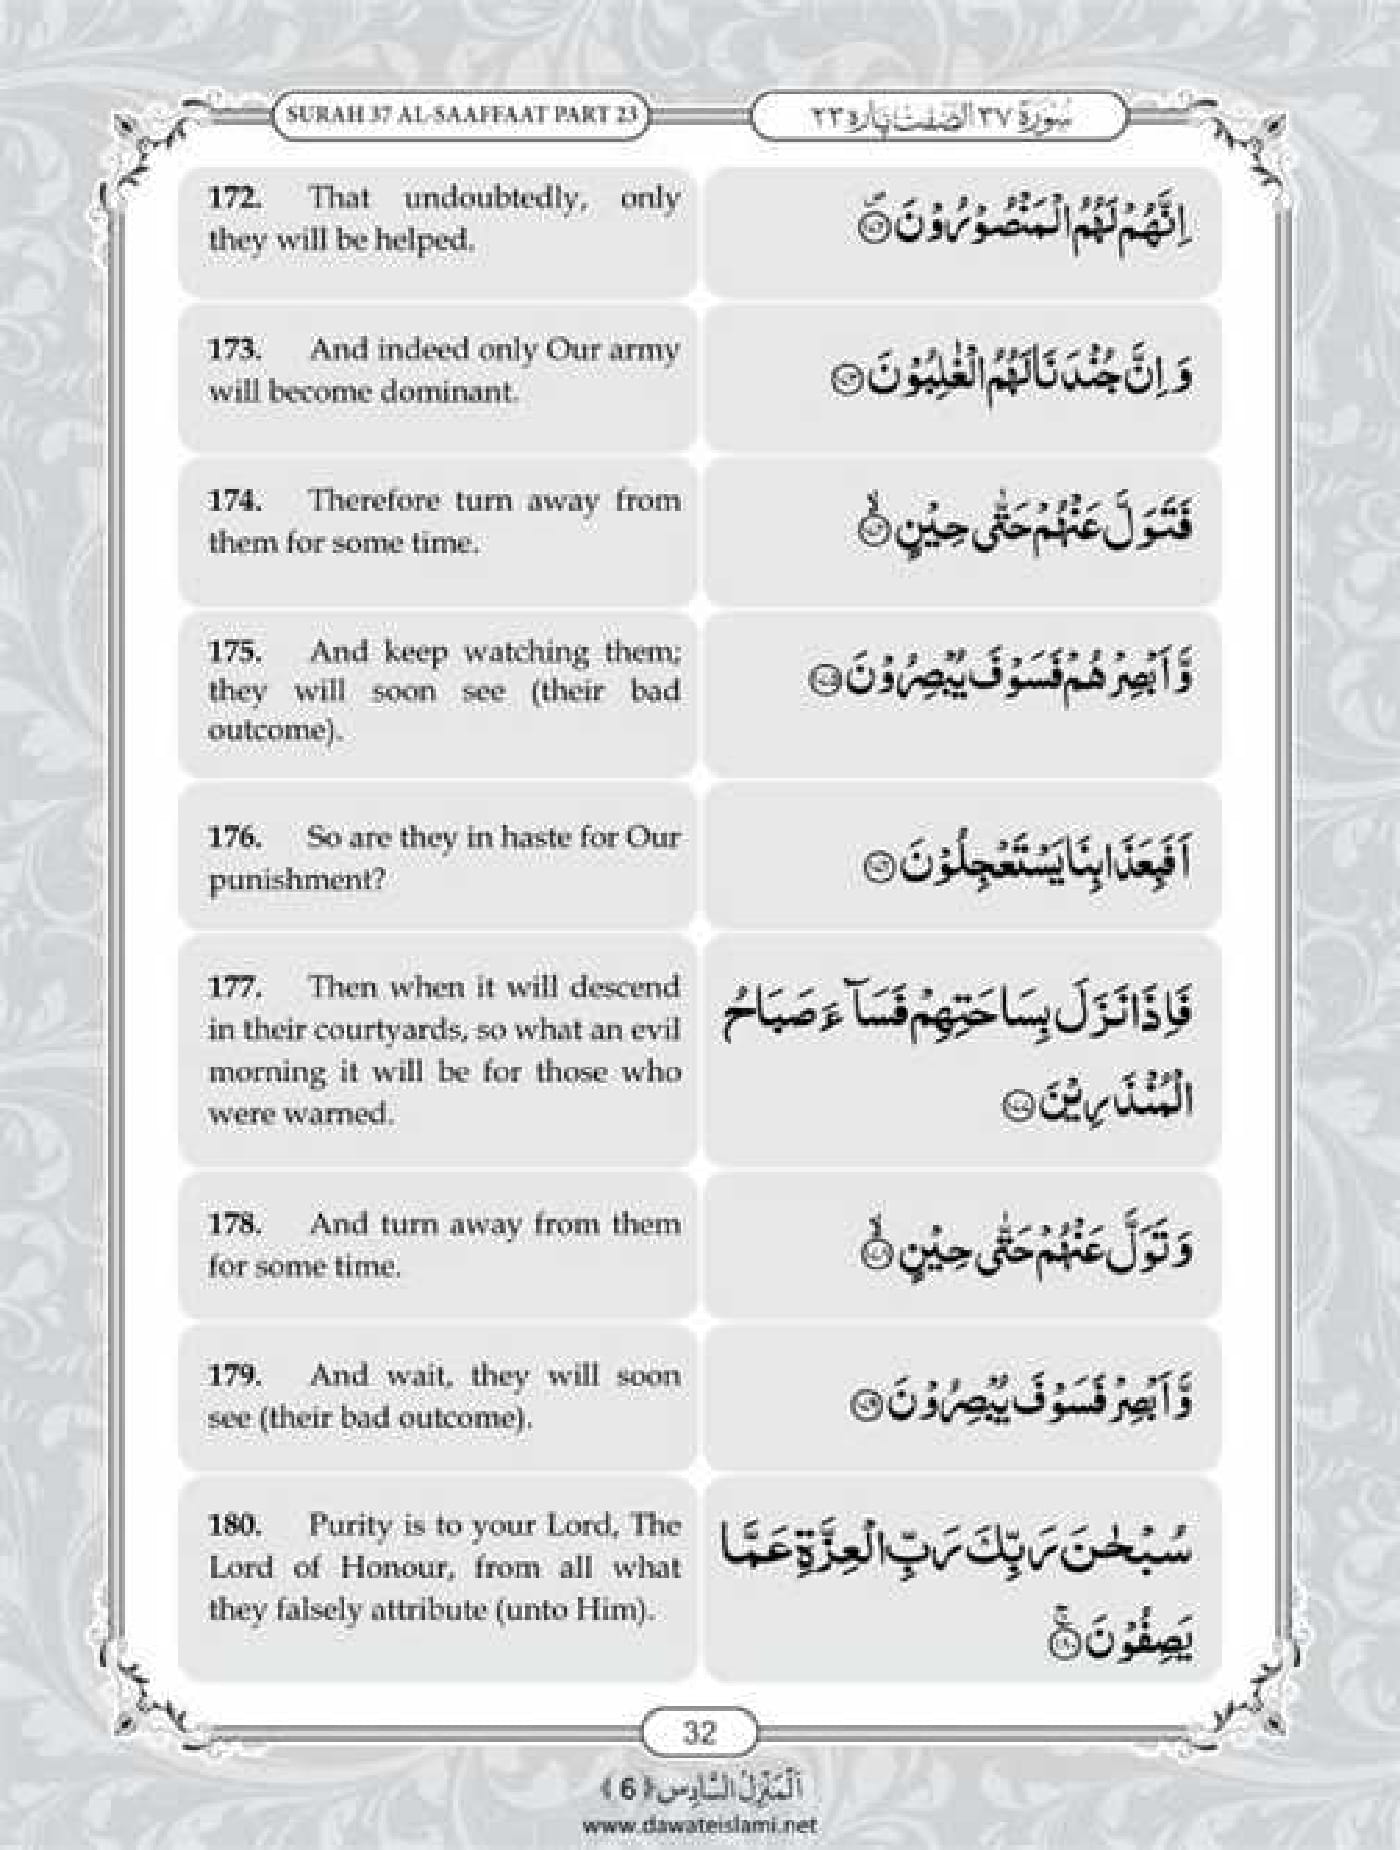 SURAH 37 AL-SAAFFAAT PART 23
سُوْرَۃ ٣٧ الصّٰفّٰت پارہ ٢٣
172. That undoubtedly, only
they will be helped.
اِنَّهُمْ لَهُمُ الْمَنْصُوْرُوْنَ ﴿۱۷۲﴾
173. And indeed only Our army
will become dominant.
وَ اِنَّ جُنْدَنَا لَهُمُ الْغٰلِبُوْنَ ﴿۱۷۳﴾
174. Therefore turn away from
them for some time.
فَتَوَلَّ عَنْهُمْ حَتّٰى حِيْنٍ ﴿۱۷۴﴾
175. And keep watching them;
they will soon see (their bad
outcome).
وَّ اَبْصِرْهُمْ فَسَوْفَ يُبْصِرُوْنَ ﴿۱۷۵﴾
176. So are they in haste for Our
punishment?
اَفَبِعَذَابِنَا يَسْتَعْجِلُوْنَ ﴿۱۷۶﴾
177. Then when it will descend
in their courtyards, so what an evil
morning it will be for those who
were warned.
فَاِذَا نَزَلَ بِسَاحَتِهِمْ فَسَآءَ صَبَاحُ
الْمُنْذَرِيْنَ ﴿۱۷۷﴾
178. And turn away from them
for some time.
وَ تَوَلَّ عَنْهُمْ حَتّٰى حِيْنٍ ﴿۱۷۸﴾
179. And wait, they will soon
see (their bad outcome).
وَّ اَبْصِرْ فَسَوْفَ يُبْصِرُوْنَ ﴿۱۷۹﴾
180. Purity is to your Lord, The
Lord of Honour, from all what
they falsely attribute (unto Him).
سُبْحٰنَ رَبِّكَ رَبِّ الْعِزَّةِ عَمَّا
يَصِفُوْنَ ﴿۱۸۰﴾
32
اَلْمَنْزِلُ السَّادِس ﴿6﴾
www.dawateislami.net